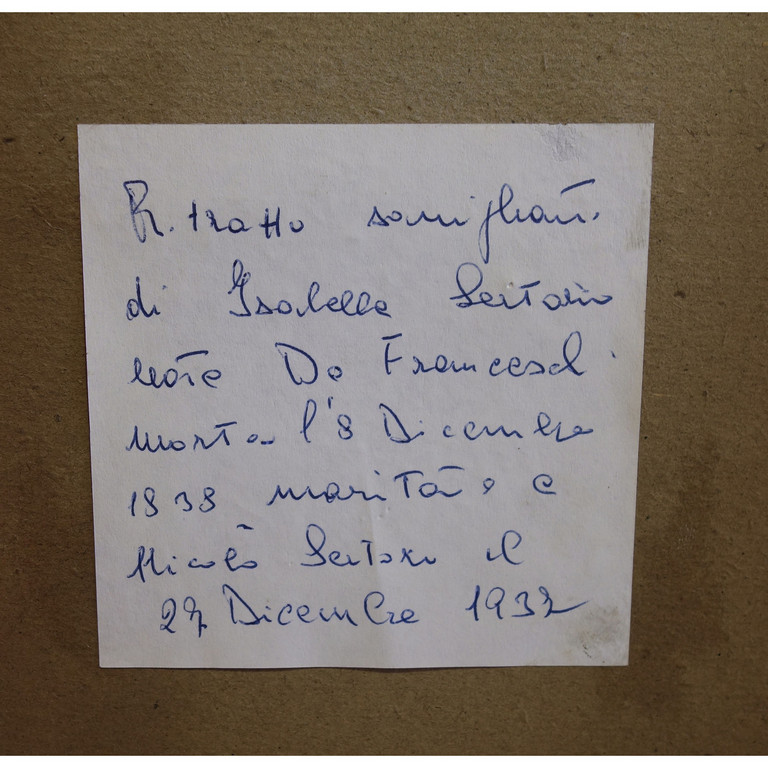 Ritratto somigliant.
di Isabella Sertorio
nata De Franceschi
morta l'8 Dicembre
1838 maritata a
Nicolò Sertorio il
27 Dicembre 1932